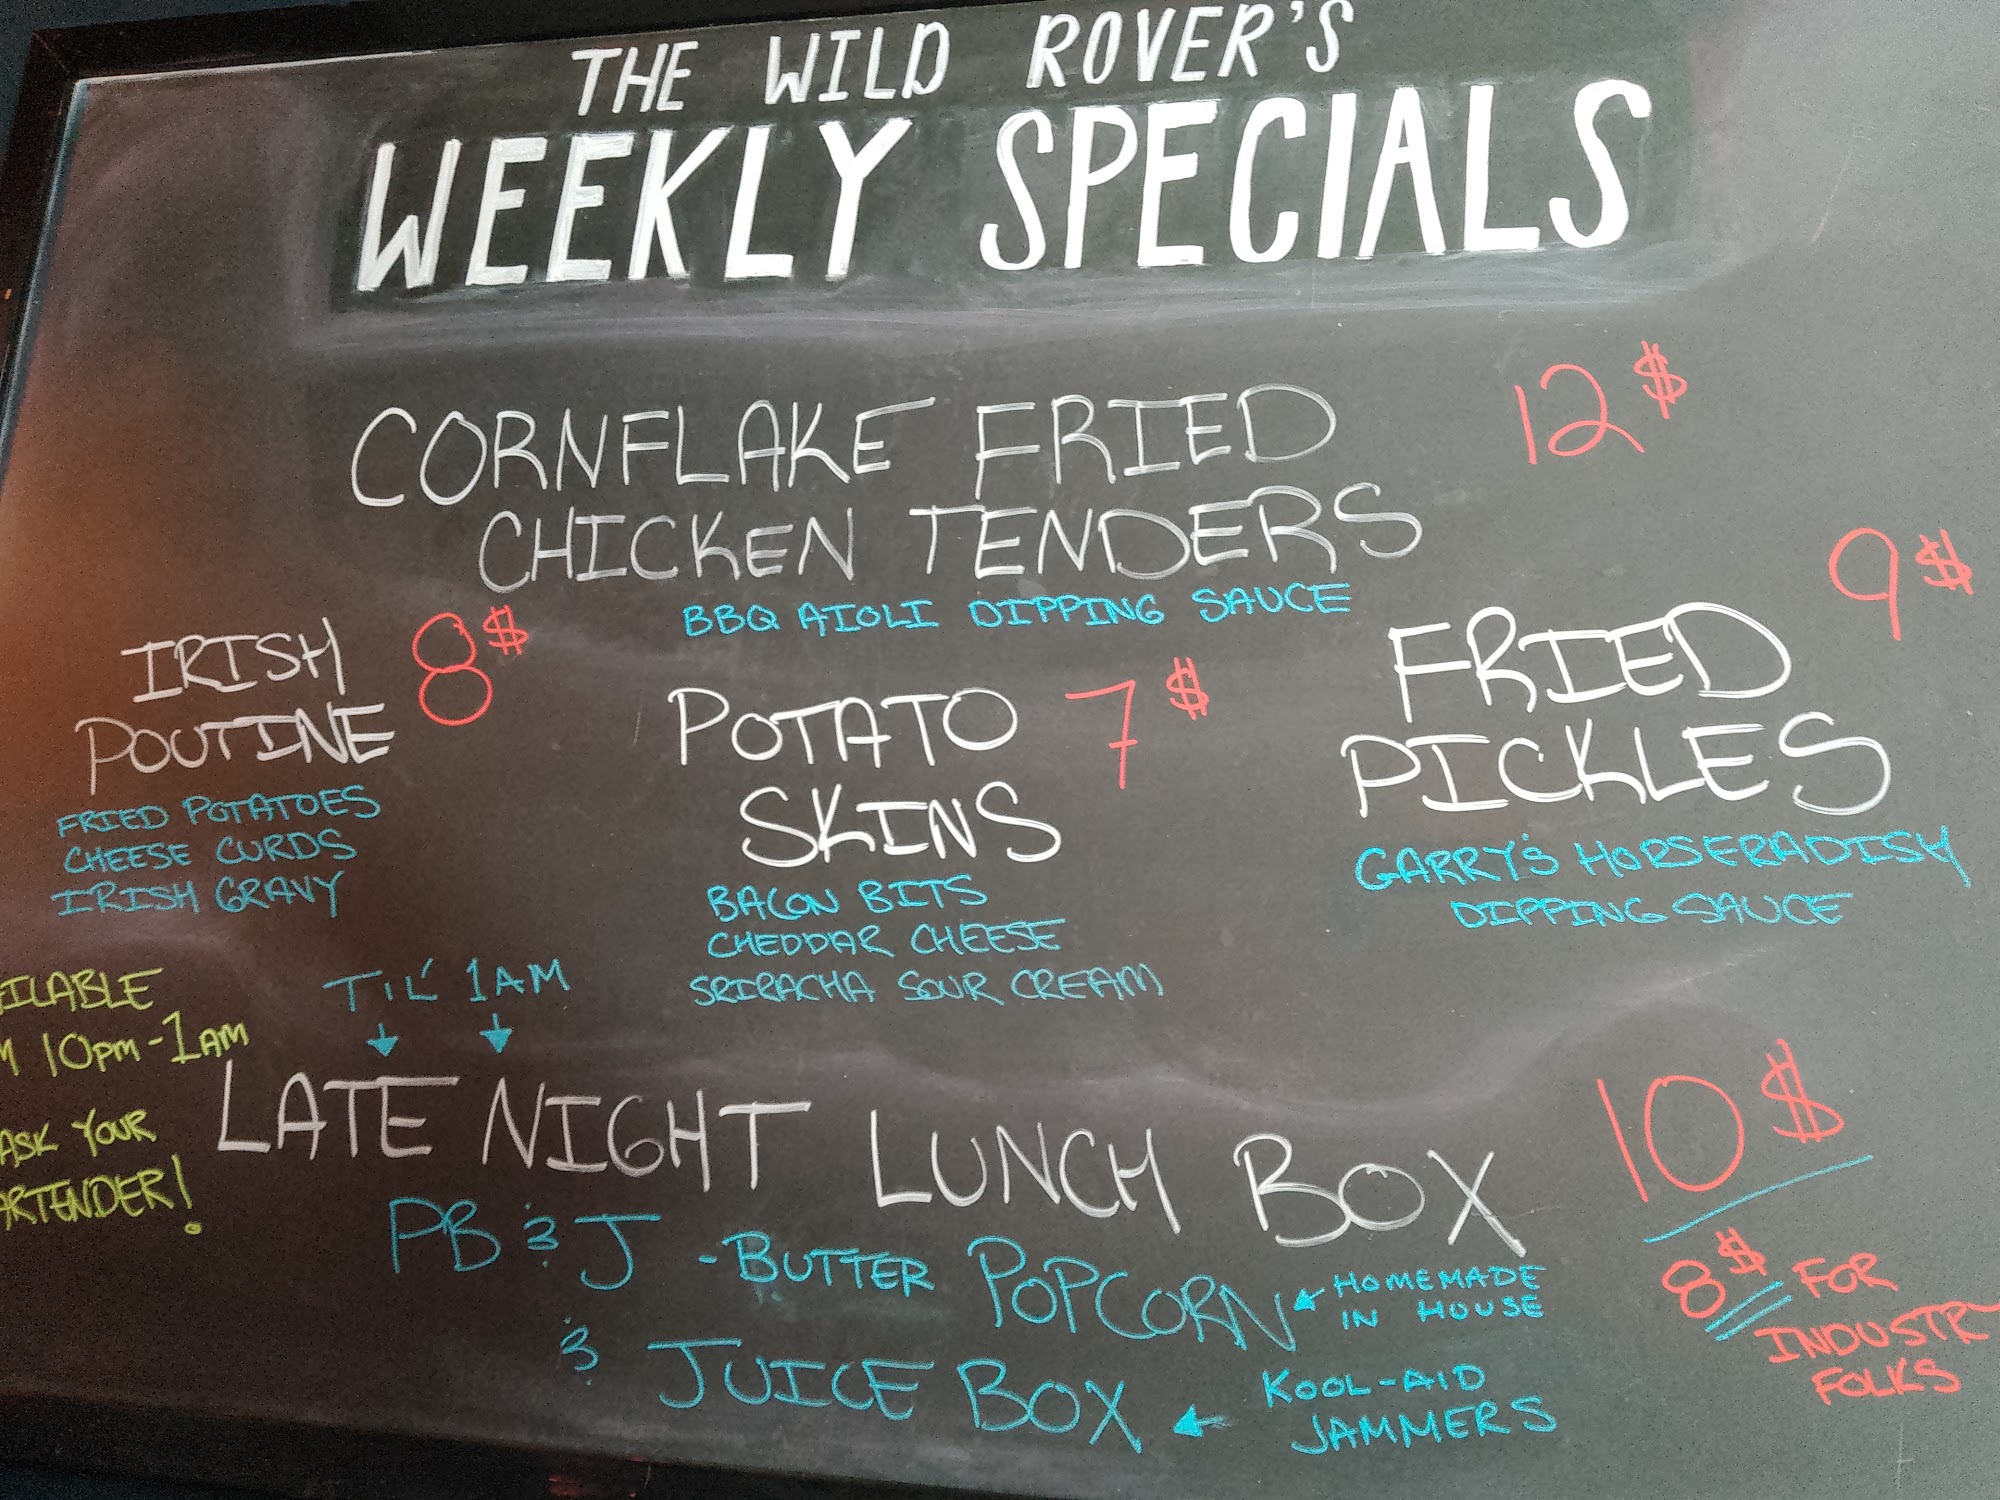 THE WILD ROVER'S
WEEKLY SPECIALS
CORNFLAKE FRIED 12$
CHICKEN TENDERS
BBQ AIOLI DIPPING SAUCE
IRISH 8$
POUTINE
FRIED POTATOES
CHEESE CURDS
IRISH GRAVY
POTATO 7$
SKINS
BACON BITS
CHEDDAR CHEESE
SRIRACHA SOUR CREAM
FRIED 9$
PICKLES
GARRY'S HORSERADISH
DIPPING SAUCE
ILABLE
M 10PM-1AM
ASK YOUR
ARTENDER!
TIL' 1AM
LATE NIGHT LUNCH BOX 10$
PB & J - BUTTER POPCORN
HOMEMADE
IN HOUSE
& JUICE BOX
KOOL-AID
JAMMERS
8$ FOR
INDUSTR
FOLKS